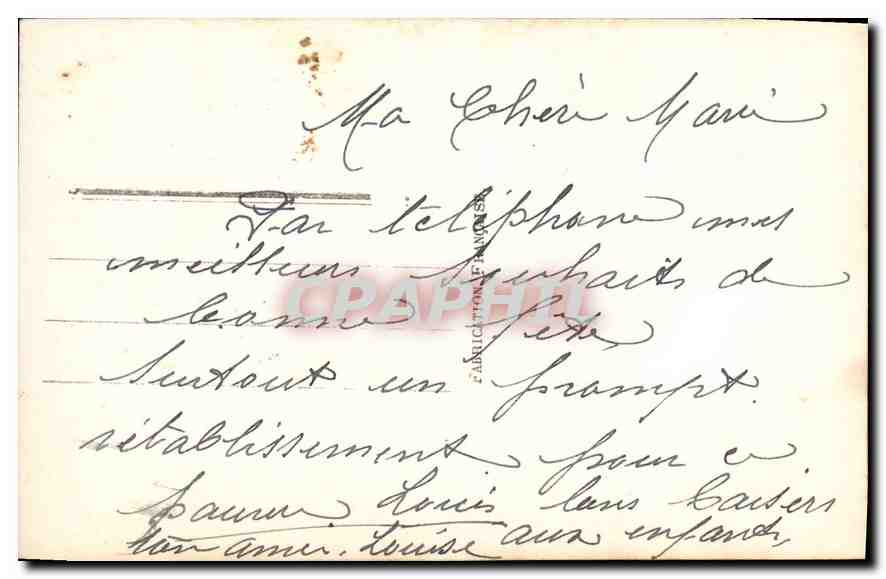 Ma Chère Marie
Par téléphone mes
meilleurs souhaits de
bonne fête
Surtout un prompt
rétablissement pour ce
pauvre Louis bons baisers
ton amie. Louise aux enfants,
FABRICATION FRANÇAISE
CPAPHIL